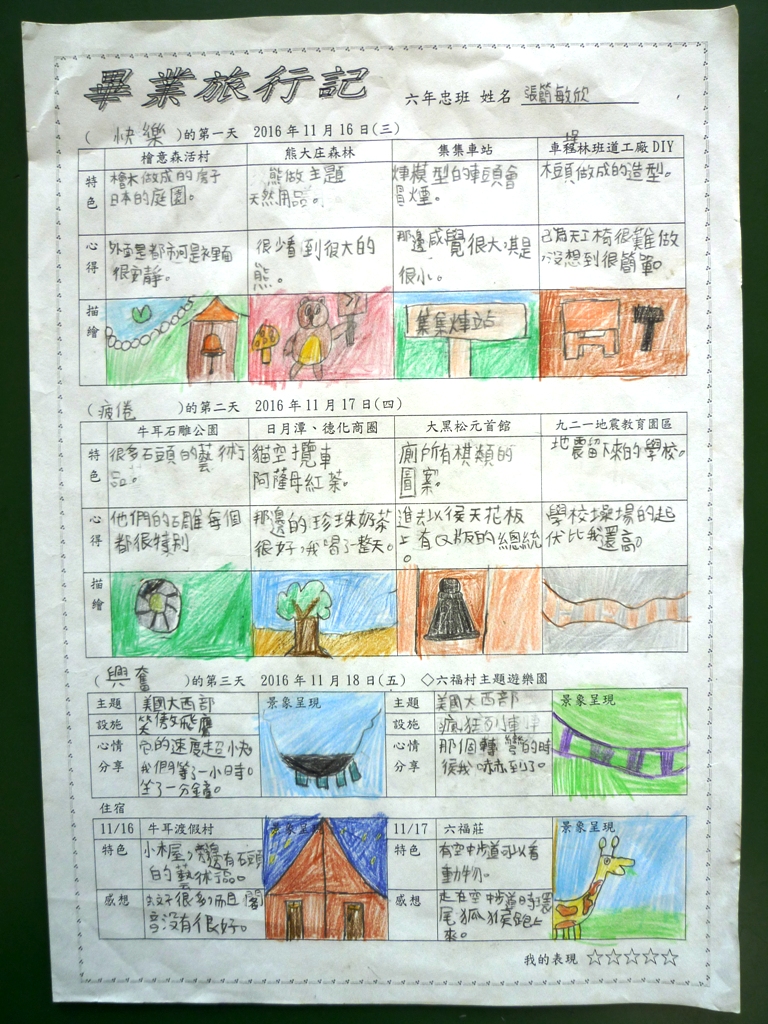 畢業旅行記
六年忠班 姓名 張簡敏欣
( 快樂 )的第一天 2016年11月16日(三)
檜意森活村 熊大庄森林 集集車站 車埕林班道工廠DIY
特色 檜木做成的房子 熊做主題 煇模型的車頭會 木頭做成的造型。
日本的庭園。 天然用品。 冒煙。
心得 外面是都市可是裡面 很少看到很大的 那邊感覺很大,其是 已為天工椅很難做
很安靜。 熊。 很小。 ,沒想到很簡單。
描繪
集集煇站
(疲倦 )的第二天 2016年11月17日(四)
牛耳石雕公園 日月潭、德化商圈 大黑松元首館 九二一地震教育園區
特色 很多石頭的藝術 貓空攬車 廁所有棋類的 地震留下來的學校。
品。 阿薩母紅茶。 圖案。
心得 他們的石雕每個 那邊的珍珠奶茶 進去以侯天花板 學校操場的起
都很特別 很好,我喝了一整天。 上有Q版的總統 伏比我還高。
。
描繪
(興奮 )的第三天 2016年11月18日(五) ◇六福村主題遊樂園
主題 美國大西部 景象呈現 主題 美國大西部 景象呈現
設施 笑傲飛鷹 設施 瘋狂列車
心情分享 它的速度超小快 心情分享 那個轉彎的時
我們等了一小時。 侯我 嚇到了。
坐了一分鐘。
住宿
11/16 牛耳渡假村 景象呈現 11/17 六福莊 景象呈現
特色 小木屋,旁邊還有石頭 特色 有空中步道可以看
的藝術品。 動物。
感想 蚊子很多而且 隔 感想 走在空中步道時,環
音沒有很好。 尾狐猴跑上
來。
我的表現 ☆☆☆☆☆